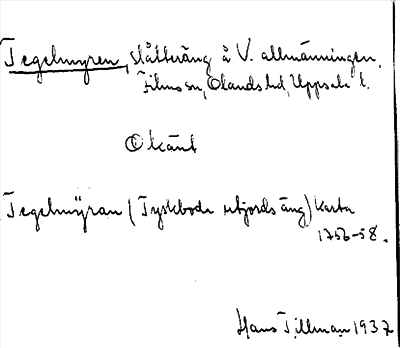 Tegelmyren, slåtteräng å V. allmänningen,
Films sn, Olands hd, Uppsala l.
Okänt
Tegelmÿran (Tyskbode utjords äng) Karta
1756-58.
Hans Tillman 1937